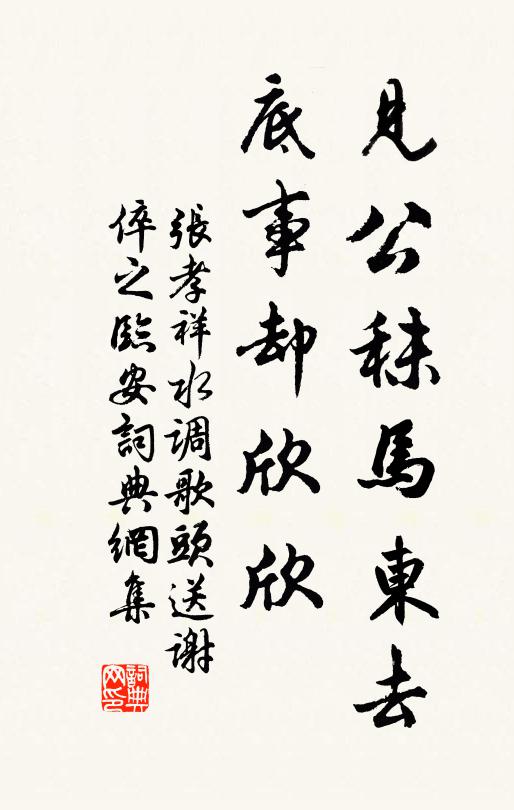 見公秣馬東去
底事却欣欣
張孝祥水调歌頭送謝
倅之臨安詞典網集
詞典
网印